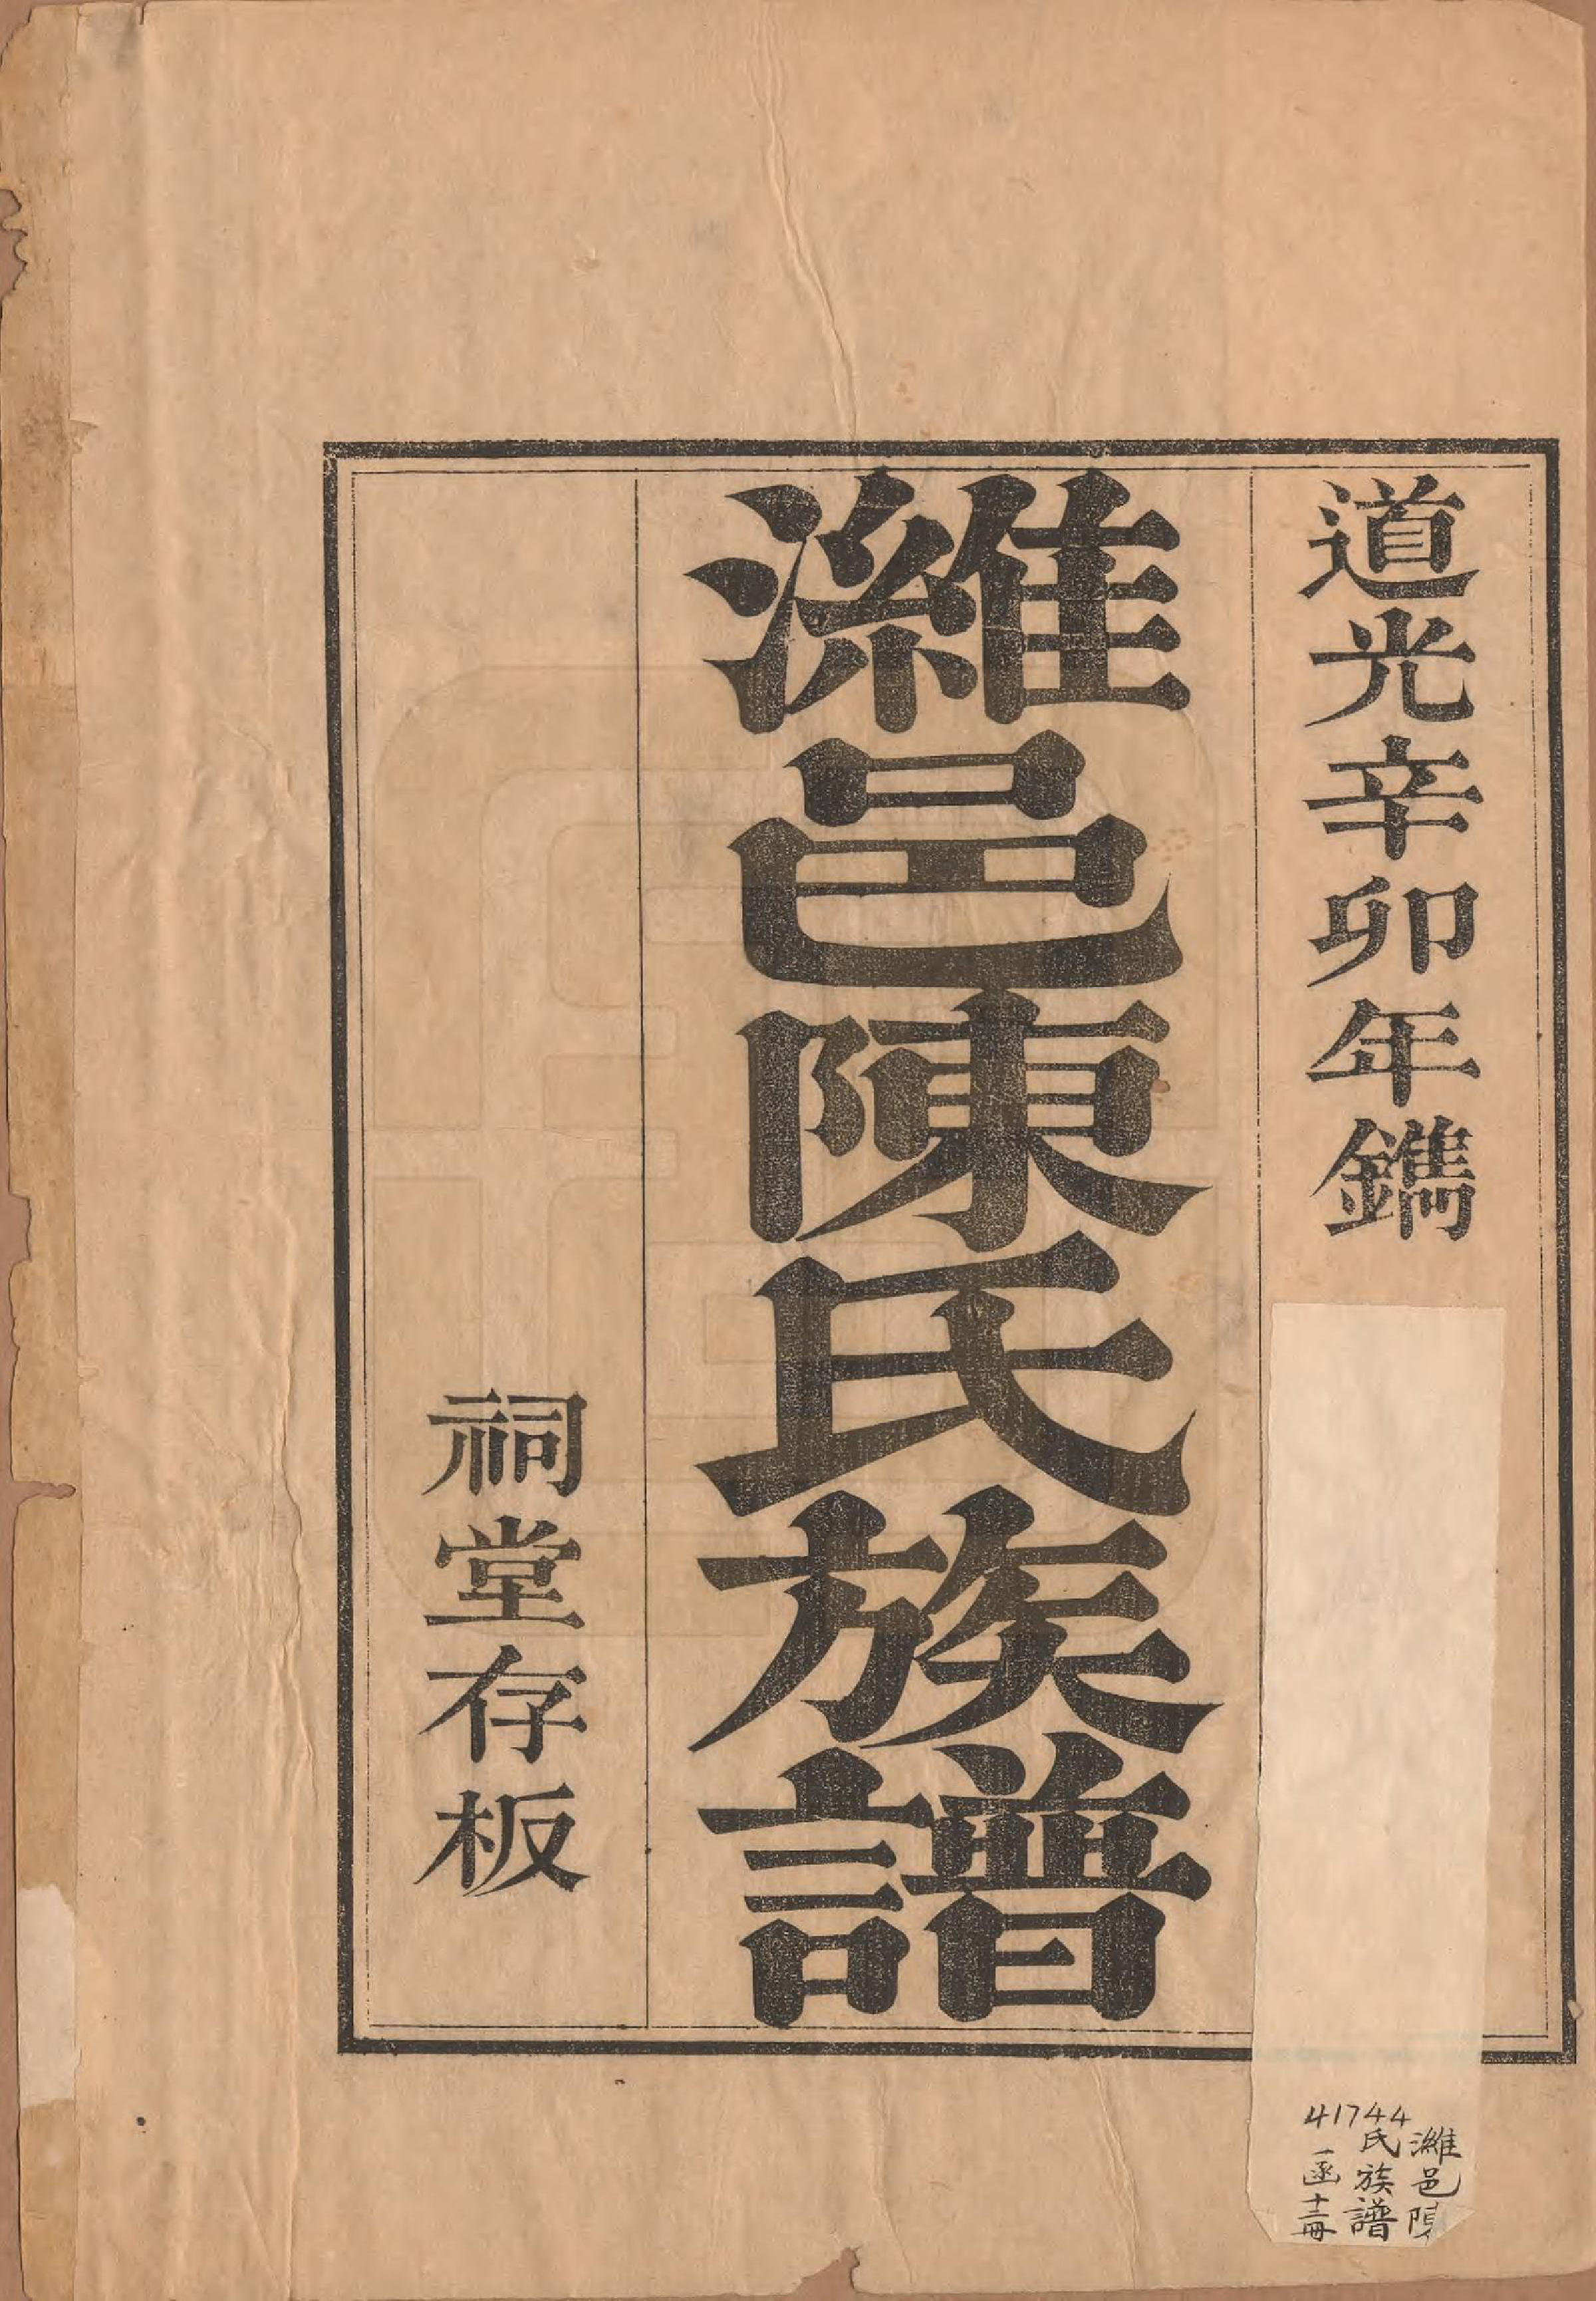 道光辛卯年鐫
濰邑陳氏族譜
祠堂存板
41744
濰邑陳
氏族譜
一函十三冊